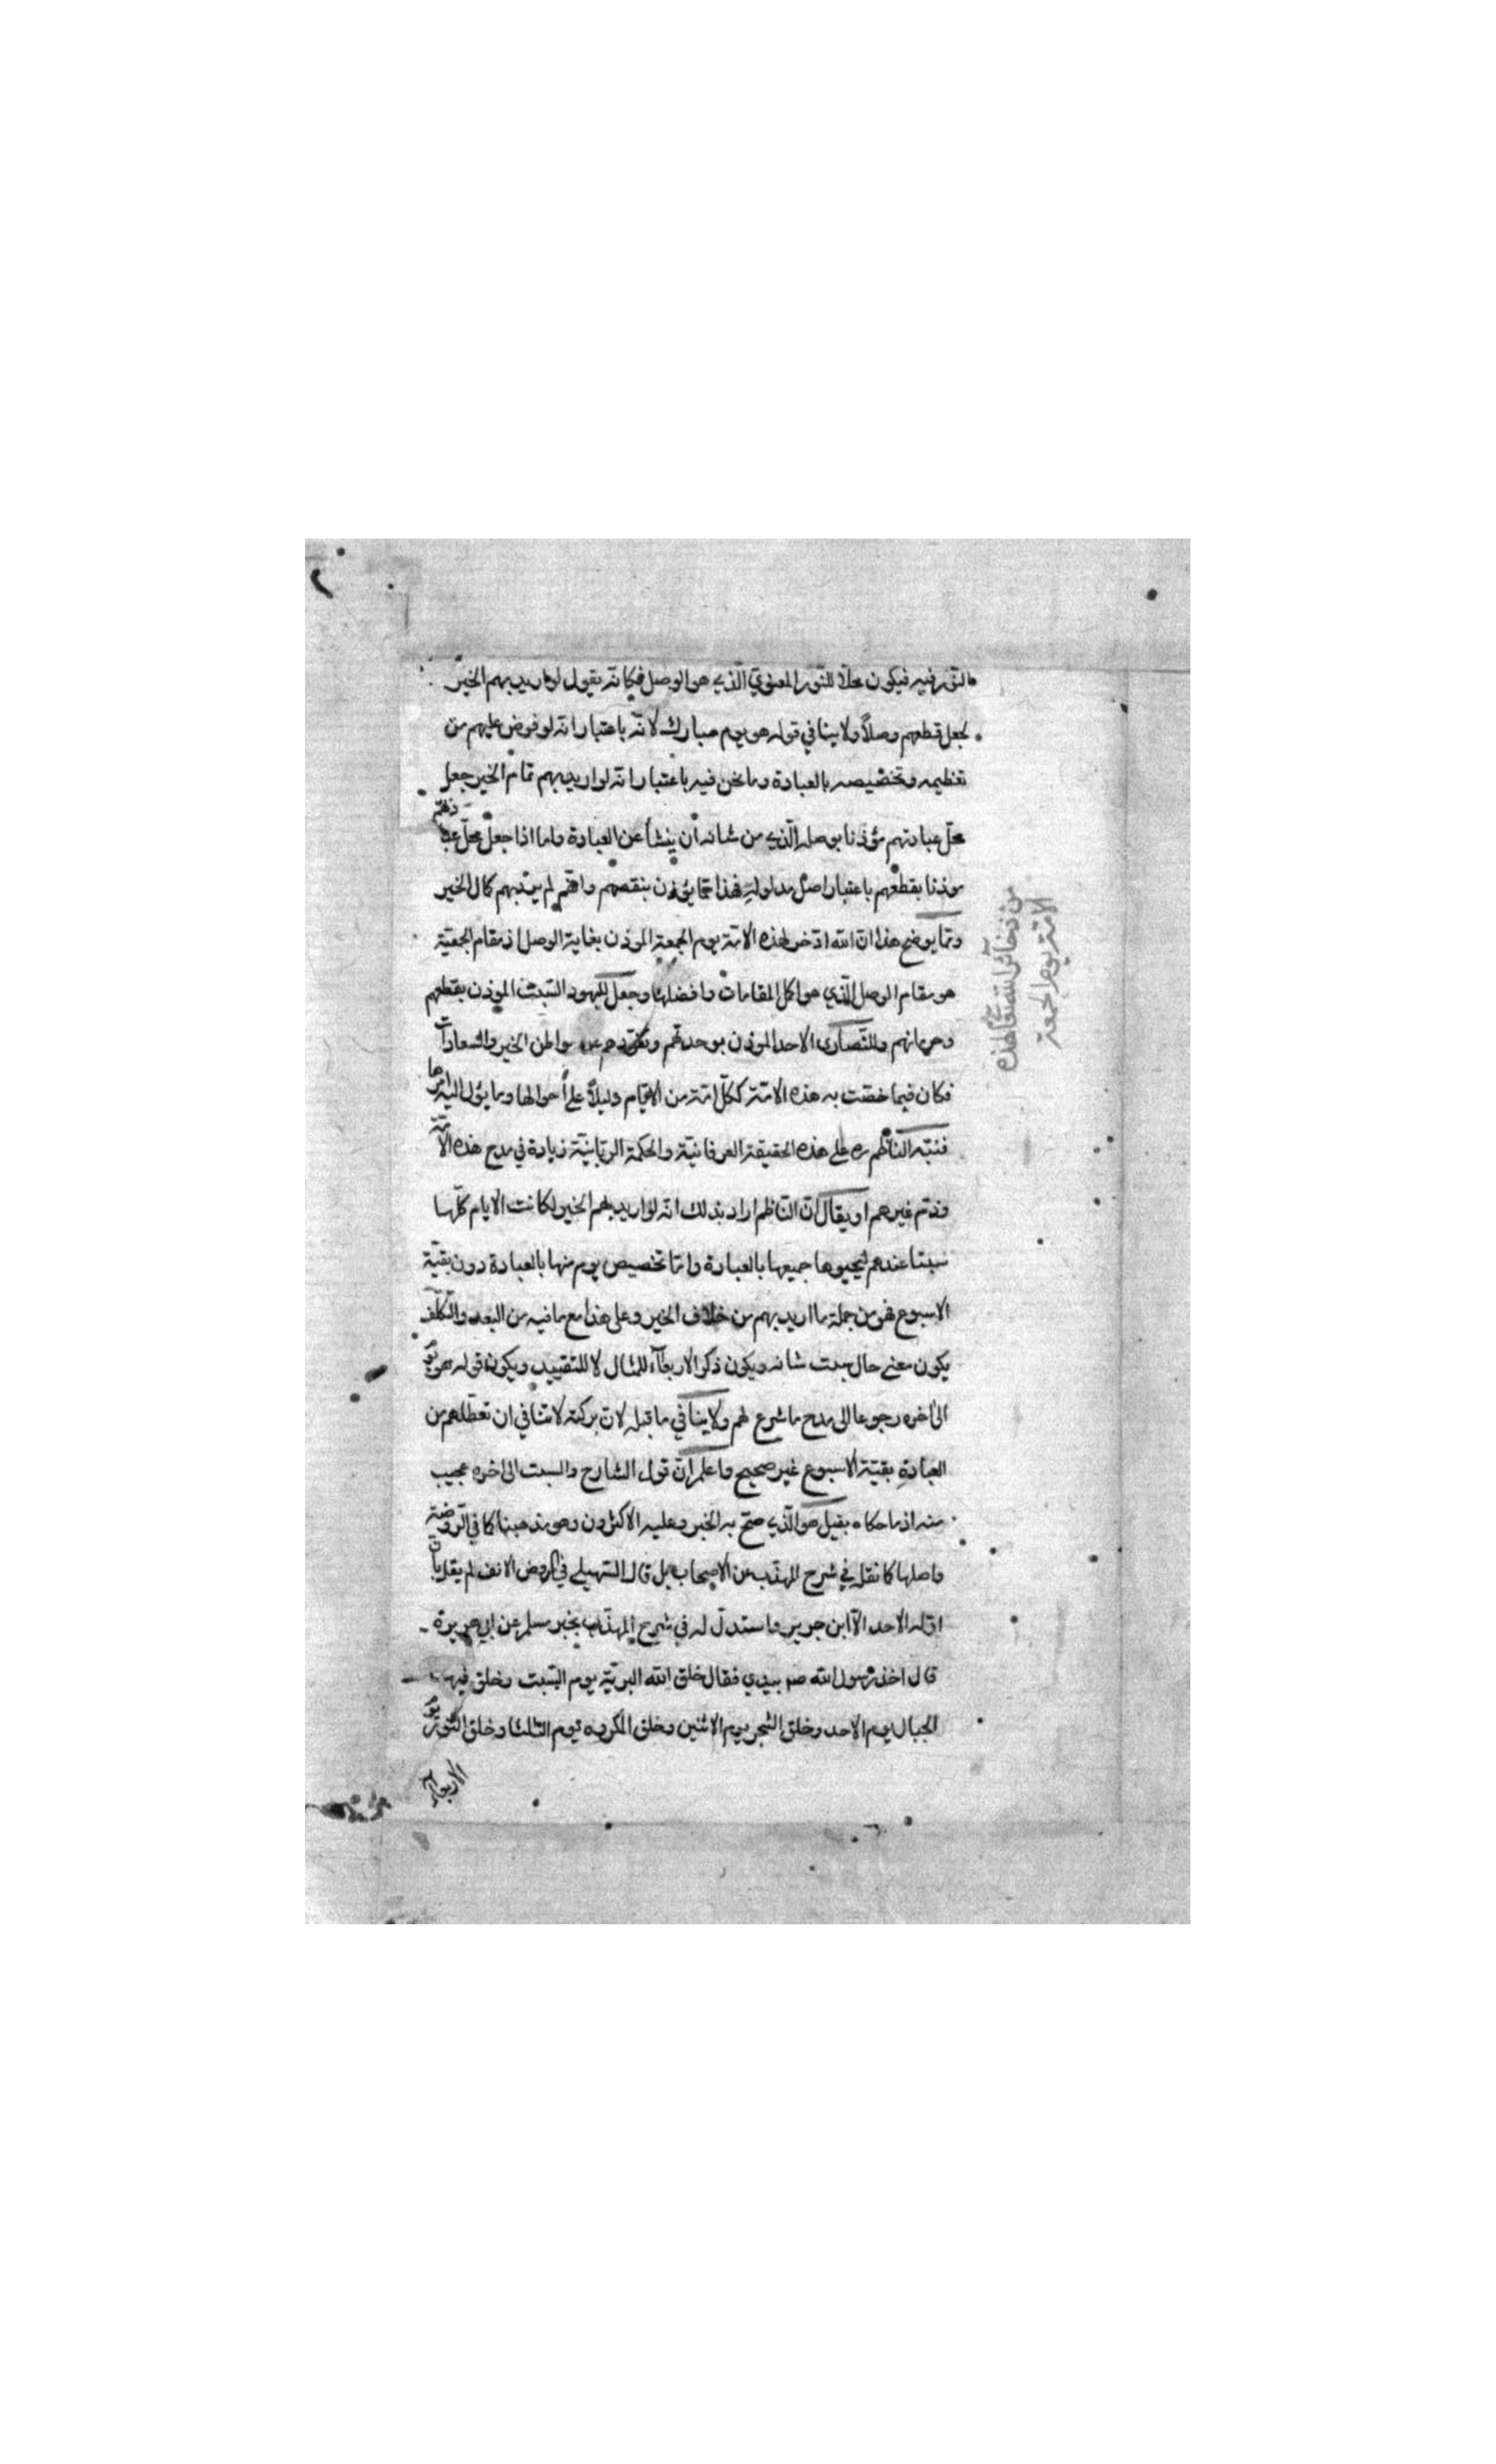 والنور فيه فيكون محلا للنور المعنوي الذي هو الوصل فكانه يقول لو اريد بهم الخير
لجعل قطعهم وصلاً ولا ينافي قوله هو يوم مبارك لانه باعتبار انه لو فوض عليهم من
تعظيمه وتخصيصه بالعبادة وما نحن فيه باعتبار انه لو اريد بهم تمام الخير جعل
محل عبادتهم مؤذنا بوصله الذي من شانه أن ينشأ عن العبادة واما اذا جعل محل عبادتهم
موذنا بقطعهم باعتبار اصل مدلوله فهذا مما يؤذن بنقصهم وانهم لم يرد بهم كمال الخير
ومما يوضح هذا ان الله ادخر لهذه الامة يوم الجمعة الموذن بغاية الوصل اذ مقام الجمعية
هو مقام الوصل الذي هو اكمل المقامات وافضلها وجعل لليهود السبت الموذن بقطعهم
وحرمانهم وللنصارى الاحد الموذن بوحدتهم وتفردهم عن مواطن الخير والسعادات
فكان فيما خصت به هذه الامة ككل امة من الايام دليلاً على احوالها وما يؤل اليه امرها
فنبه الناظم ره على هذه الحقيقة العرفانية والحكمة الربانية زيادة في مدح هذه الامة
وذم غيرهم او يقال ان الناظم اراد بذلك انه لو اريد بهم الخير لكانت الايام كلها
سبتا عندهم ليحيوها جميعها بالعبادة واما تخصيص يوم منها بالعبادة دون بقية
الاسبوع فهو من جملة ما اريد بهم من خلاف الخير وعلى هذا مع ما فيه من البعد والتكلف
يكون معنى حال سبت شانه ويكون ذكر الاربعآء للمثال لا للتقييد ويكون قوله هو يوم
الى اخره رجوعا الى مدح ما شرع لهم ولا ينافي ما قبله لان بركته لا تنافي ان تعطلهم من
العبادةِ بقية الاسبوع غير صحيح واعلم ان قول الشارح والسبت الى اخره عجيب
منه اذ ما حكاه بقيل هو الذي صح به الخبر وعليه الاكثرون وهو مذهبنا كما في الروضة
واصلها كما نقل في شرح المهذب عن الاصحاب بل قال السهيلي في الروض الانف لم يقل بان
اوله الاحد الا ابن جرير واستدل له في شرح المهذب بخبر مسلم عن ابي هريرة
قال اخذ رسول الله صم بيدي فقال خلق الله البرية يوم السبت وخلق فيها
الجبال يوم الاحد وخلق الشجر يوم الاثنين وخلق المكروه يوم الثلثا وخلق النور يوم
الاربعآء
من ذخائر الله تعا لهذه
الامة يوم الجمعة